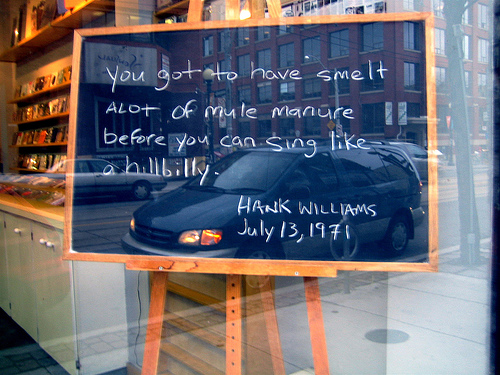 you got to have smelt
ALOt OF mule manure
before you can sing like
a hillbilly.
HANK WILLIAMS
July 13, 1971